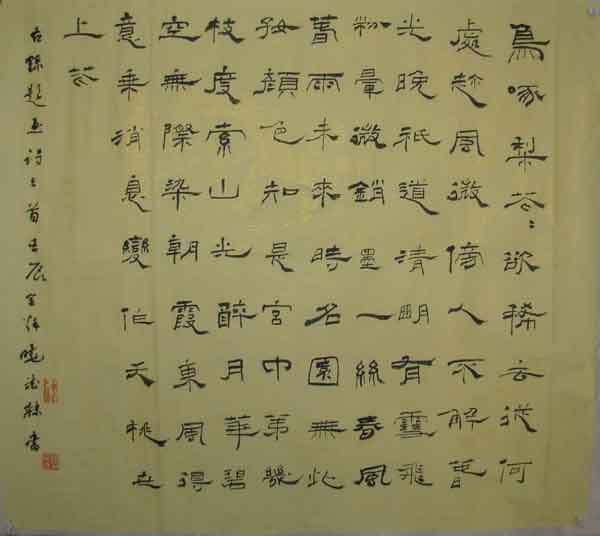 鳥啄梨花々欲稀云從何
處趂風微傍人不解春
光晚祇道清明有雪飛
粉暈微銷墨一絲春風
暮雨未來時名園無此
好顏色知是宮中第幾
枝度索山光醉月華碧
空無際染朝霞東風得
意乘消息變作天桃世
上花
右錄題画詩三首壬辰冬曉書